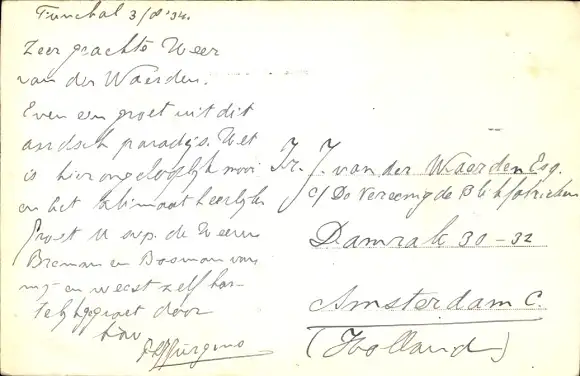 Funchal 3/8 '34.
Zeer geachte Heer
van der Waerden.
Even een groet uit dit
aardsch paradijs. Het
is hier ongelooflijk mooi
en het klimaat heerlijk
Groet U svp. de Heeren
en Bosman van
mij en weest zelf har-
telijk gegroet door
Uw
Ir. J. van der Waerden Esq.
c/o De Vereenigde Blikfabrieken
Damrak 30-32
Amsterdam C.
(Holland)